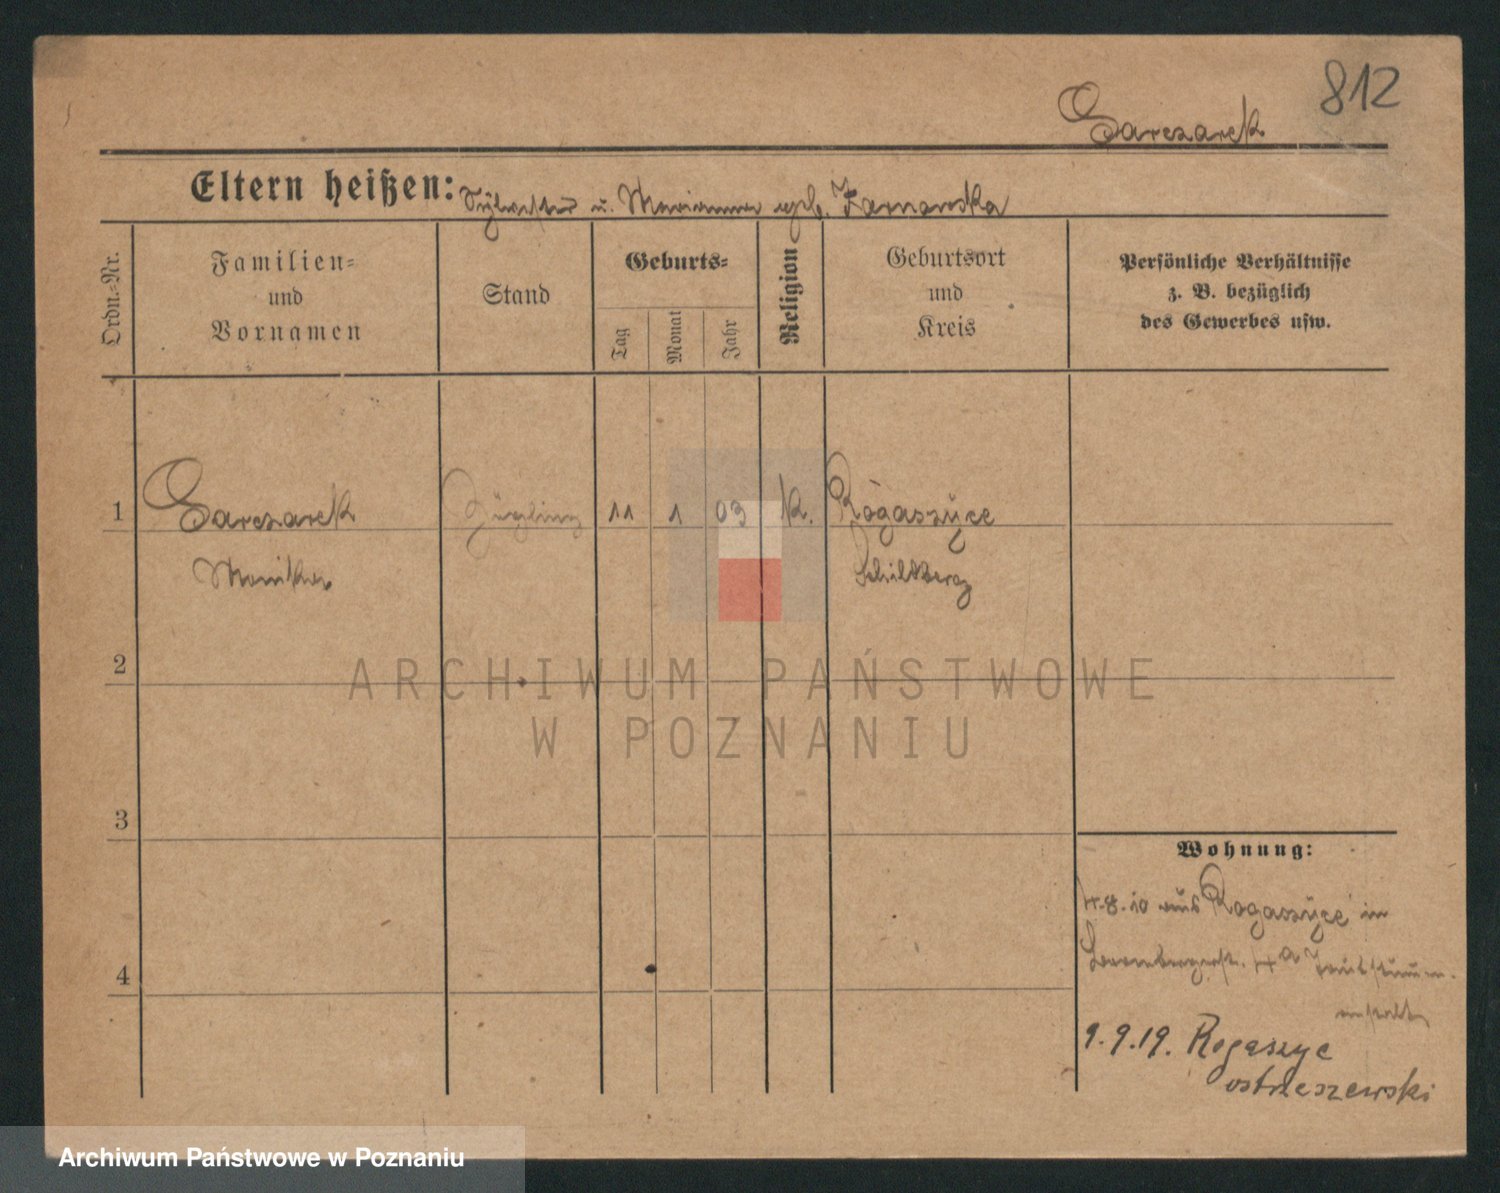 812
Garczarek
Eltern heißen: Sylvester u. Marianna geb. Zarnowska
Ordn.-Nr.
Familien-
und
Vornamen
Stand
Geburts-
Tag
Monat
Jahr
Religion
Geburtsort
und
Kreis
Persönliche Verhältnisse
z. B. bezüglich
des Gewerbes usw.
1
Garczarek
Zögling
11
1
03
K.
Rogaszyce
Monika
Schildberg
2
ARCHIWUM PAŃSTWOWE
W POZNANIU
3
Wohnung:
8.10 aus Rogaszyce in
4
Taubstumm-
anstalt
9.9.19. Rogaszyce
ostrzeszewski
Archiwum Państwowe w Poznaniu